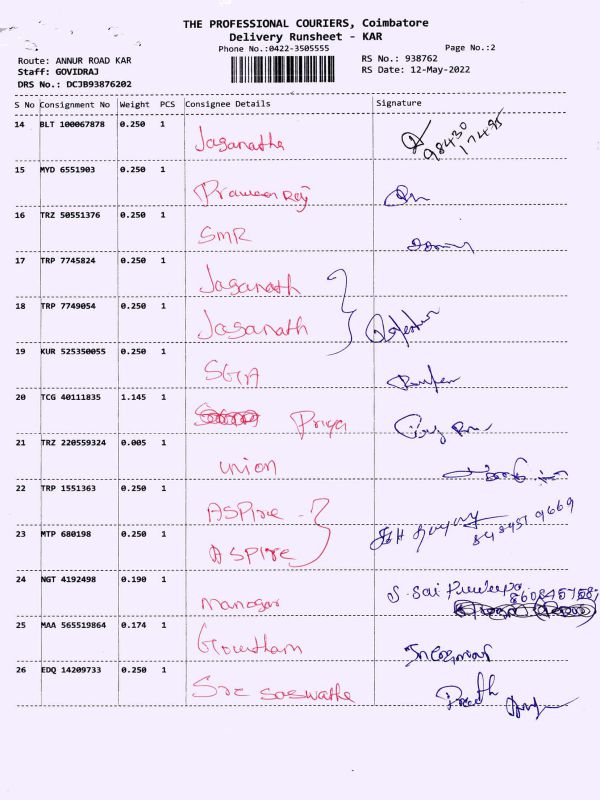 THE PROFESSIONAL COURIERS, Coimbatore
Delivery Runsheet - KAR
Phone No.:0422-3505555
Page No.:2
Route: ANNUR ROAD KAR
RS No.: 938762
Staff: GOVIDRAJ
RS Date: 12-May-2022
DRS No.: DCJB93876202
S No Consignment No Weight PCS Consignee Details Signature
14 BLT 100067878 0.250 1
Jaganatha
98430
17495
15 MYD 6551903 0.250 1
Praveen Raj
16 TRZ 50551376 0.250 1
SMR
17 TRP 7745824 0.250 1
Jaganath
18 TRP 7749054 0.250 1
Jaganath
19 KUR 525350055 0.250 1
20 TCG 40111835 1.145 1
Priya
21 TRZ 220559324 0.005 1
union
22 TRP 1551363 0.250 1
ASPire
23 MTP 680198 0.250 1
ASPire
24 NGT 4192498 0.190 1
S. Sai
manager
25 MAA 565519864 0.174 1
Gowtham
26 EDQ 14209733 0.250 1
Sre saswathe